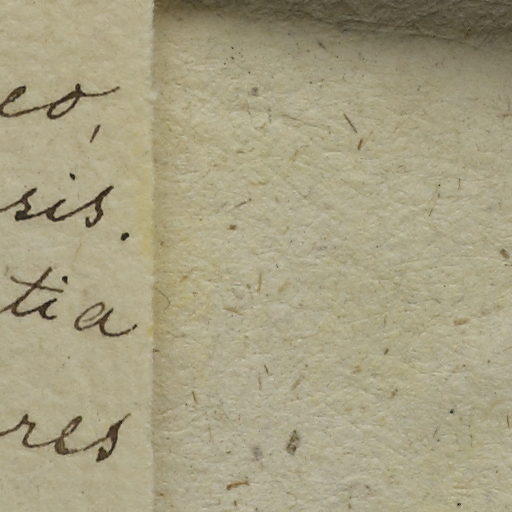 eo,
sis.
tia
res